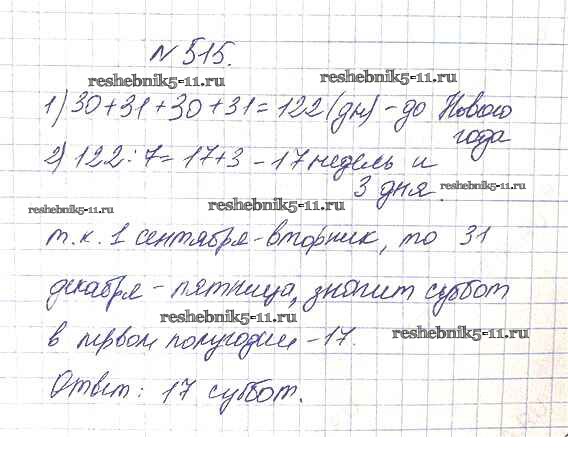 № 515.
reshebnik5-11.ru
reshebnik5-11.ru
1) 30 + 31 + 30 + 31 = 122 (дн) - до Нового
года
2) 122 : 7 = 17 + 3 - 17 недель и
3 дня.
reshebnik5-11.ru
reshebnik5-11.ru
reshebnik5-11.ru
т.к. 1 сентября - вторник, то 31
декабря - пятница, значит суббот
reshebnik5-11.ru
reshebnik5-11.ru
в первом полугодии - 17.
Ответ: 17 суббот.